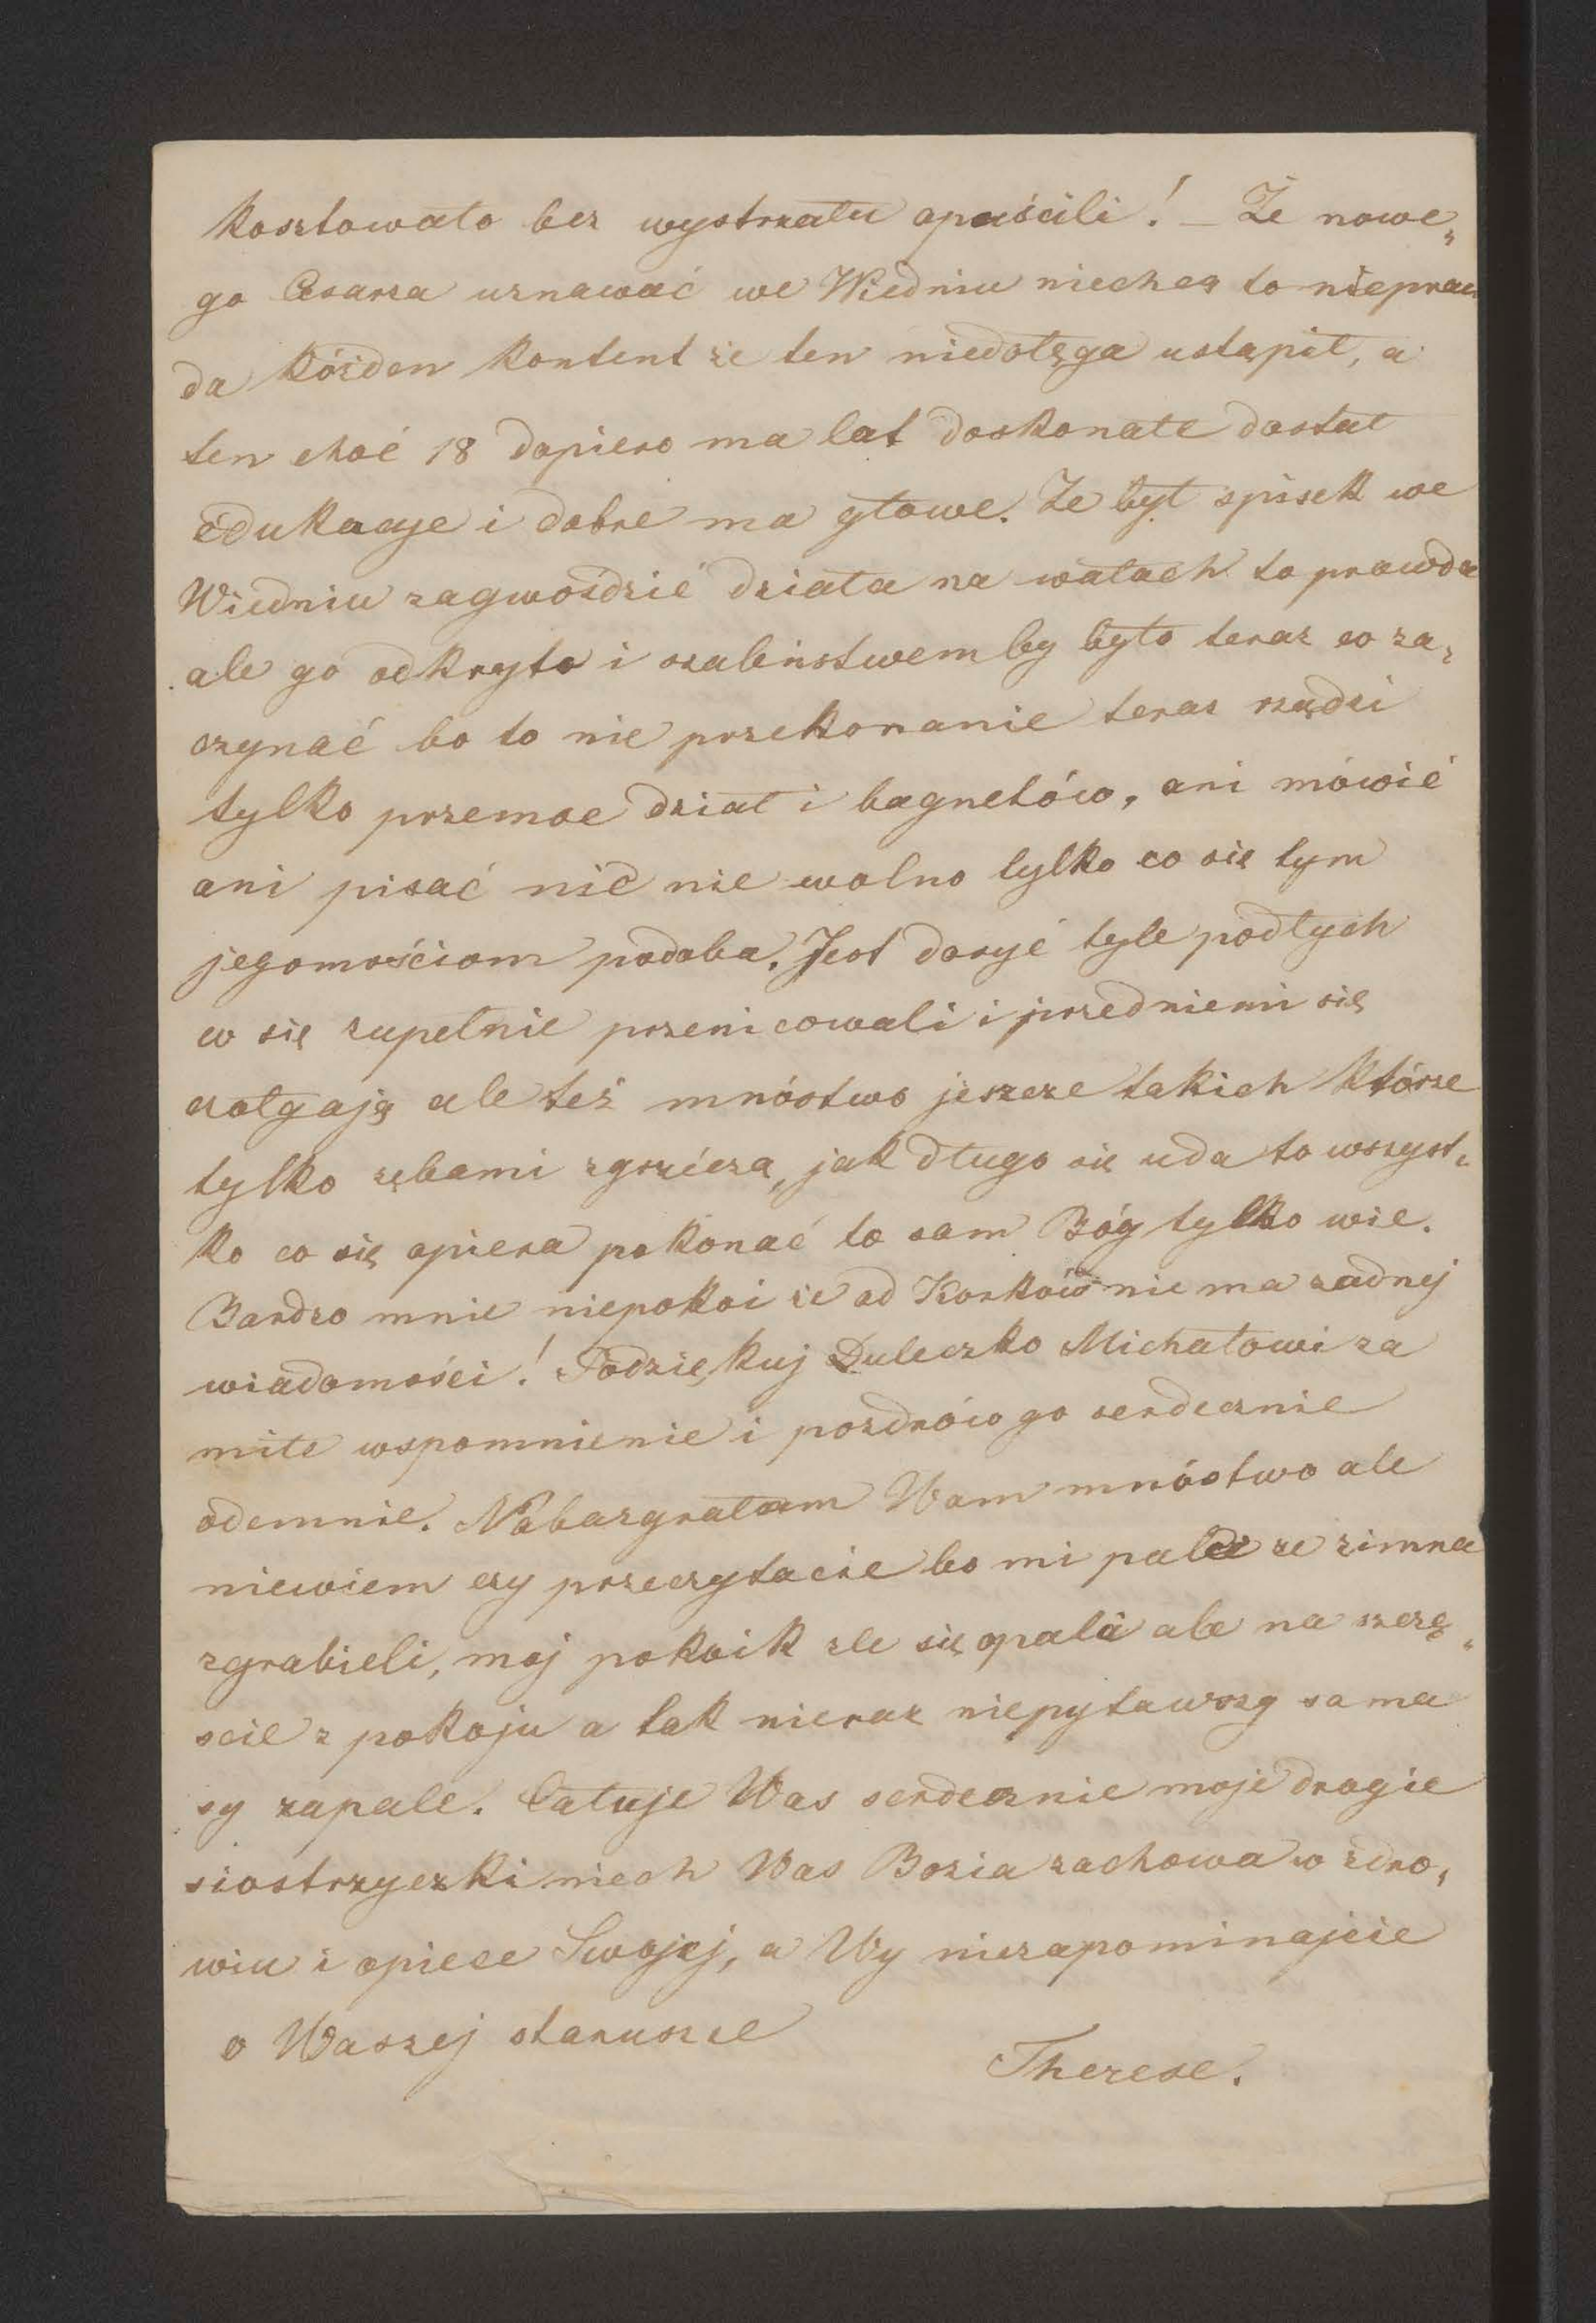 kosztowało bez wystrzału opuścili! – Że nowe„
go Cesarza uznawać we Wiedniu niechcą to niepraw
da kóżden kontent że ten niedołęga ustąpił, a
ten choć 18 dopiero ma lat doskonałe dostał
edukacye i dobre ma głowe. Że był spisek we
Wiedniu zagwoździć działa na wałach to prawda
ale go odkryto i szaleństwem by było teraz co za„
czynać bo to nie przekonanie teraz rządzi
tylko przemoc dział i bagnetów, ani mówić
ani pisać nic nie wolno tylko co się tym
jegomościom podoba. Jest dosyć tyle podłych
co się zupełnie przenicowali i przedniemi się
czołgają ale też mnóstwo jeszcze takich którze
tylko zębami zgrzécza, jak długo się uda to wszyst„
ko co się opiera pokonać to sam Bóg tylko wie.
Bardzo mnie niepokoi że od Korków nie ma żadnej
wiadomości! Podziękuj Duleczko Michałowi za
miłe wspomnienie i pozdrów go serdecznie
odemnie. Nabazgrałam Wam mnóstwo ale
niewiem czy przeczytacie bo mi palci ze zimna
zgrabieli, moj pokoik zle się opala ale na szczę„
scie z pokoju a tak nieraz niepytawszy sama
sy zapale. Całuje Was serdecznie moje drogie
siostrzyczki niech Was Bozia zachowa w zdro„
wiu i opiece Swojej, a Wy niezapominajcie
o Waszej starusze
Therese.